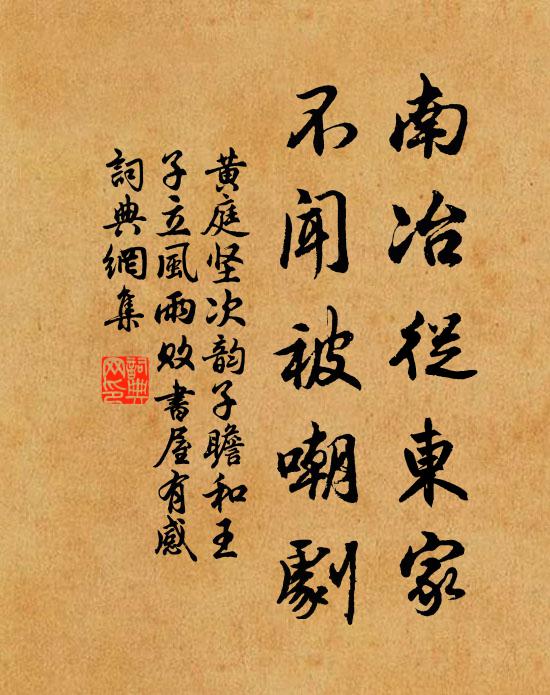 南冶從東家
不聞被嘲劇
黃庭坚次韵子瞻和王
子立風雨敗書屋有感
詞典網集
詞典
网印